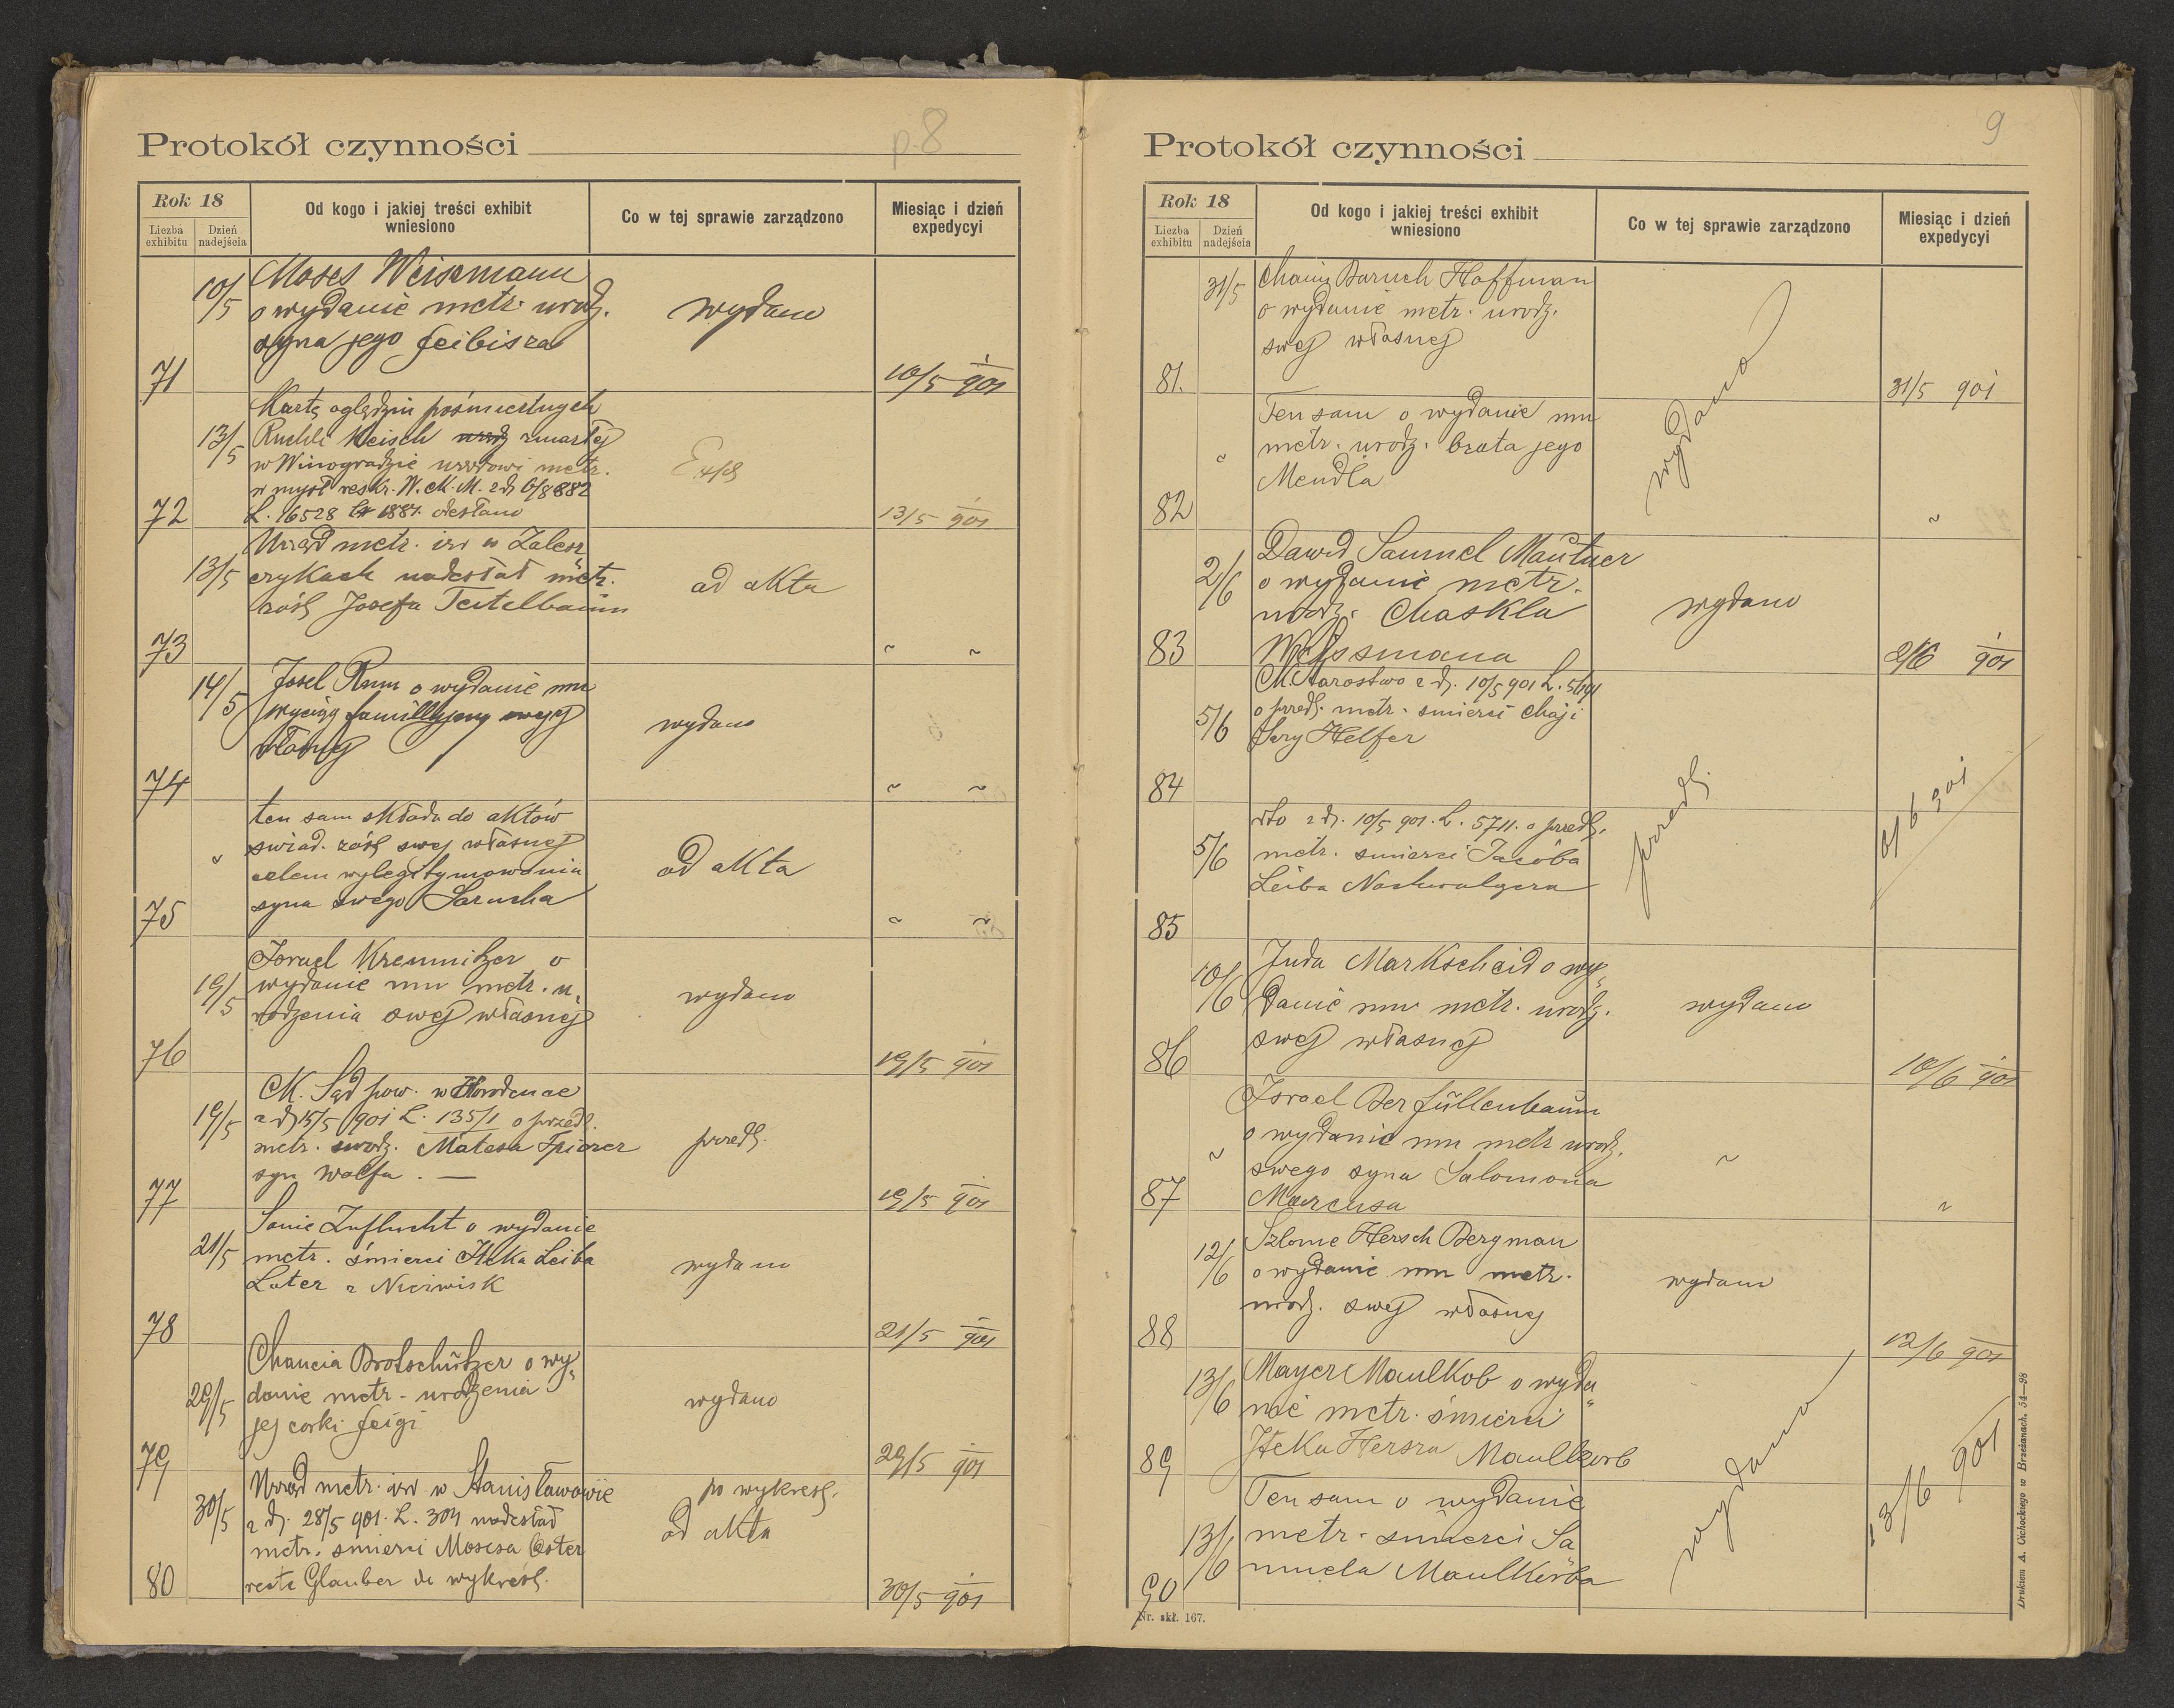 Protokół czynności
p. 8
Rok 18
Liczba exhibitu
Dzień nadejścia
Od kogo i jakiej treści exhibit wniesiono
Co w tej sprawie zarządzono
Miesiąc i dzień expedycyi
10/5 Moses Weissmann
o wydanie metr. urodz.
syna jego Feibisza
wydano
71
10/5 901
Kartę oględzin pośmiertnych
13/5 Ruchli Weisch zmarłej
w Winogradzie urzędowi metr.
w myśl reskr. W. C. K. M. z d. 6/8 882
72
L. 16528 1887 odesłano
13/5 901
Urząd metr. izr w Zalesz
13/5 czykach nadesłał metr.
zaśl Josefa Teitelbaum
ad akta
73
" "
14/5 Josel Rum o wydanie mu
wyciąg familijny swej
własnej
wydano
74
" "
ten sam składa do aktów
" świad. zaśl swej własnej
celem wylegitymowania
75 syna swego Barucha
ad akta
" "
Israel Kremnitzer o
19/5 wydanie mu metr. u
rodzenia swej własnej
wydano
76
19/5 901
C.K. Sąd pow. w Horodence
19/5 z d 15/5 901 L. 135/1 o przedł.
metr. urodz. Matesa Spierer
syn Wolfa. —
przedł.
77
19/5 901
Sanie Zuflucht o wydanie
21/5 metr. śmierci Icka Leiba
Later z Niezwisk
wydano
78
21/5 901
Chancia Brotschützer o wy
29/5 danie metr. urodzenia
jej corki Feigi
wydano
79
29/5 901
Urząd metr. izr w Stanisławowie
30/5 z d. 28/5 901. L. 304 nadesłał
metr. śmierci Mosesa Oster
80 recte Glauber do wykreśl.
po wykreśl.
ad akta
30/5 901
Protokół czynności
9
Rok 18
Liczba exhibitu
Dzień nadejścia
Od kogo i jakiej treści exhibit wniesiono
Co w tej sprawie zarządzono
Miesiąc i dzień expedycyi
31/5 Chaim Baruch Hoffman
o wydanie metr. urodz.
swej własnej
81.
31/5 901
wydano
Ten sam o wydanie mu
" metr. urodz. brata jego
Mendla
82
"
Dawid Samuel Mautner
2/6 o wydanie metr.
urodz. Chaskla
83 Weissmana
wydano
2/6 901
C.K. Starostwo z d. 10/5 901 L.
5/6 o przedł. metr. śmierci Chaji
Sary Helfer
84
przedł.
6/6 901
dto z d. 10/5 901. L. 5711. o przedł.
5/6 metr. śmierci Jacoba
Leiba Nachwalgera
85
Juda Markscheid o wy
10/6 danie mu metr. urodz.
swej własnej
wydano
86
10/6 901
Israel Ber Füllenbaum
o wydanie mu metr urodz.
" swego syna Salomona
87 Marcusa
"
"
Szlome Hersch Bergman
12/6 o wydanie mu metr.
urodz. swej własnej
wydano
88
12/6 901
13/6 Mayer Maulkob o wyda
nie metr. śmierci
89 Icka Hersza Maulkorb
wydano
13/6 901
Ten sam o wydanie
13/6 metr. śmierci Sa
90 muela Maulkorba
Nr. skł. 167.
Drukiem A. Cichockiego w Brzeżanach. 54—98